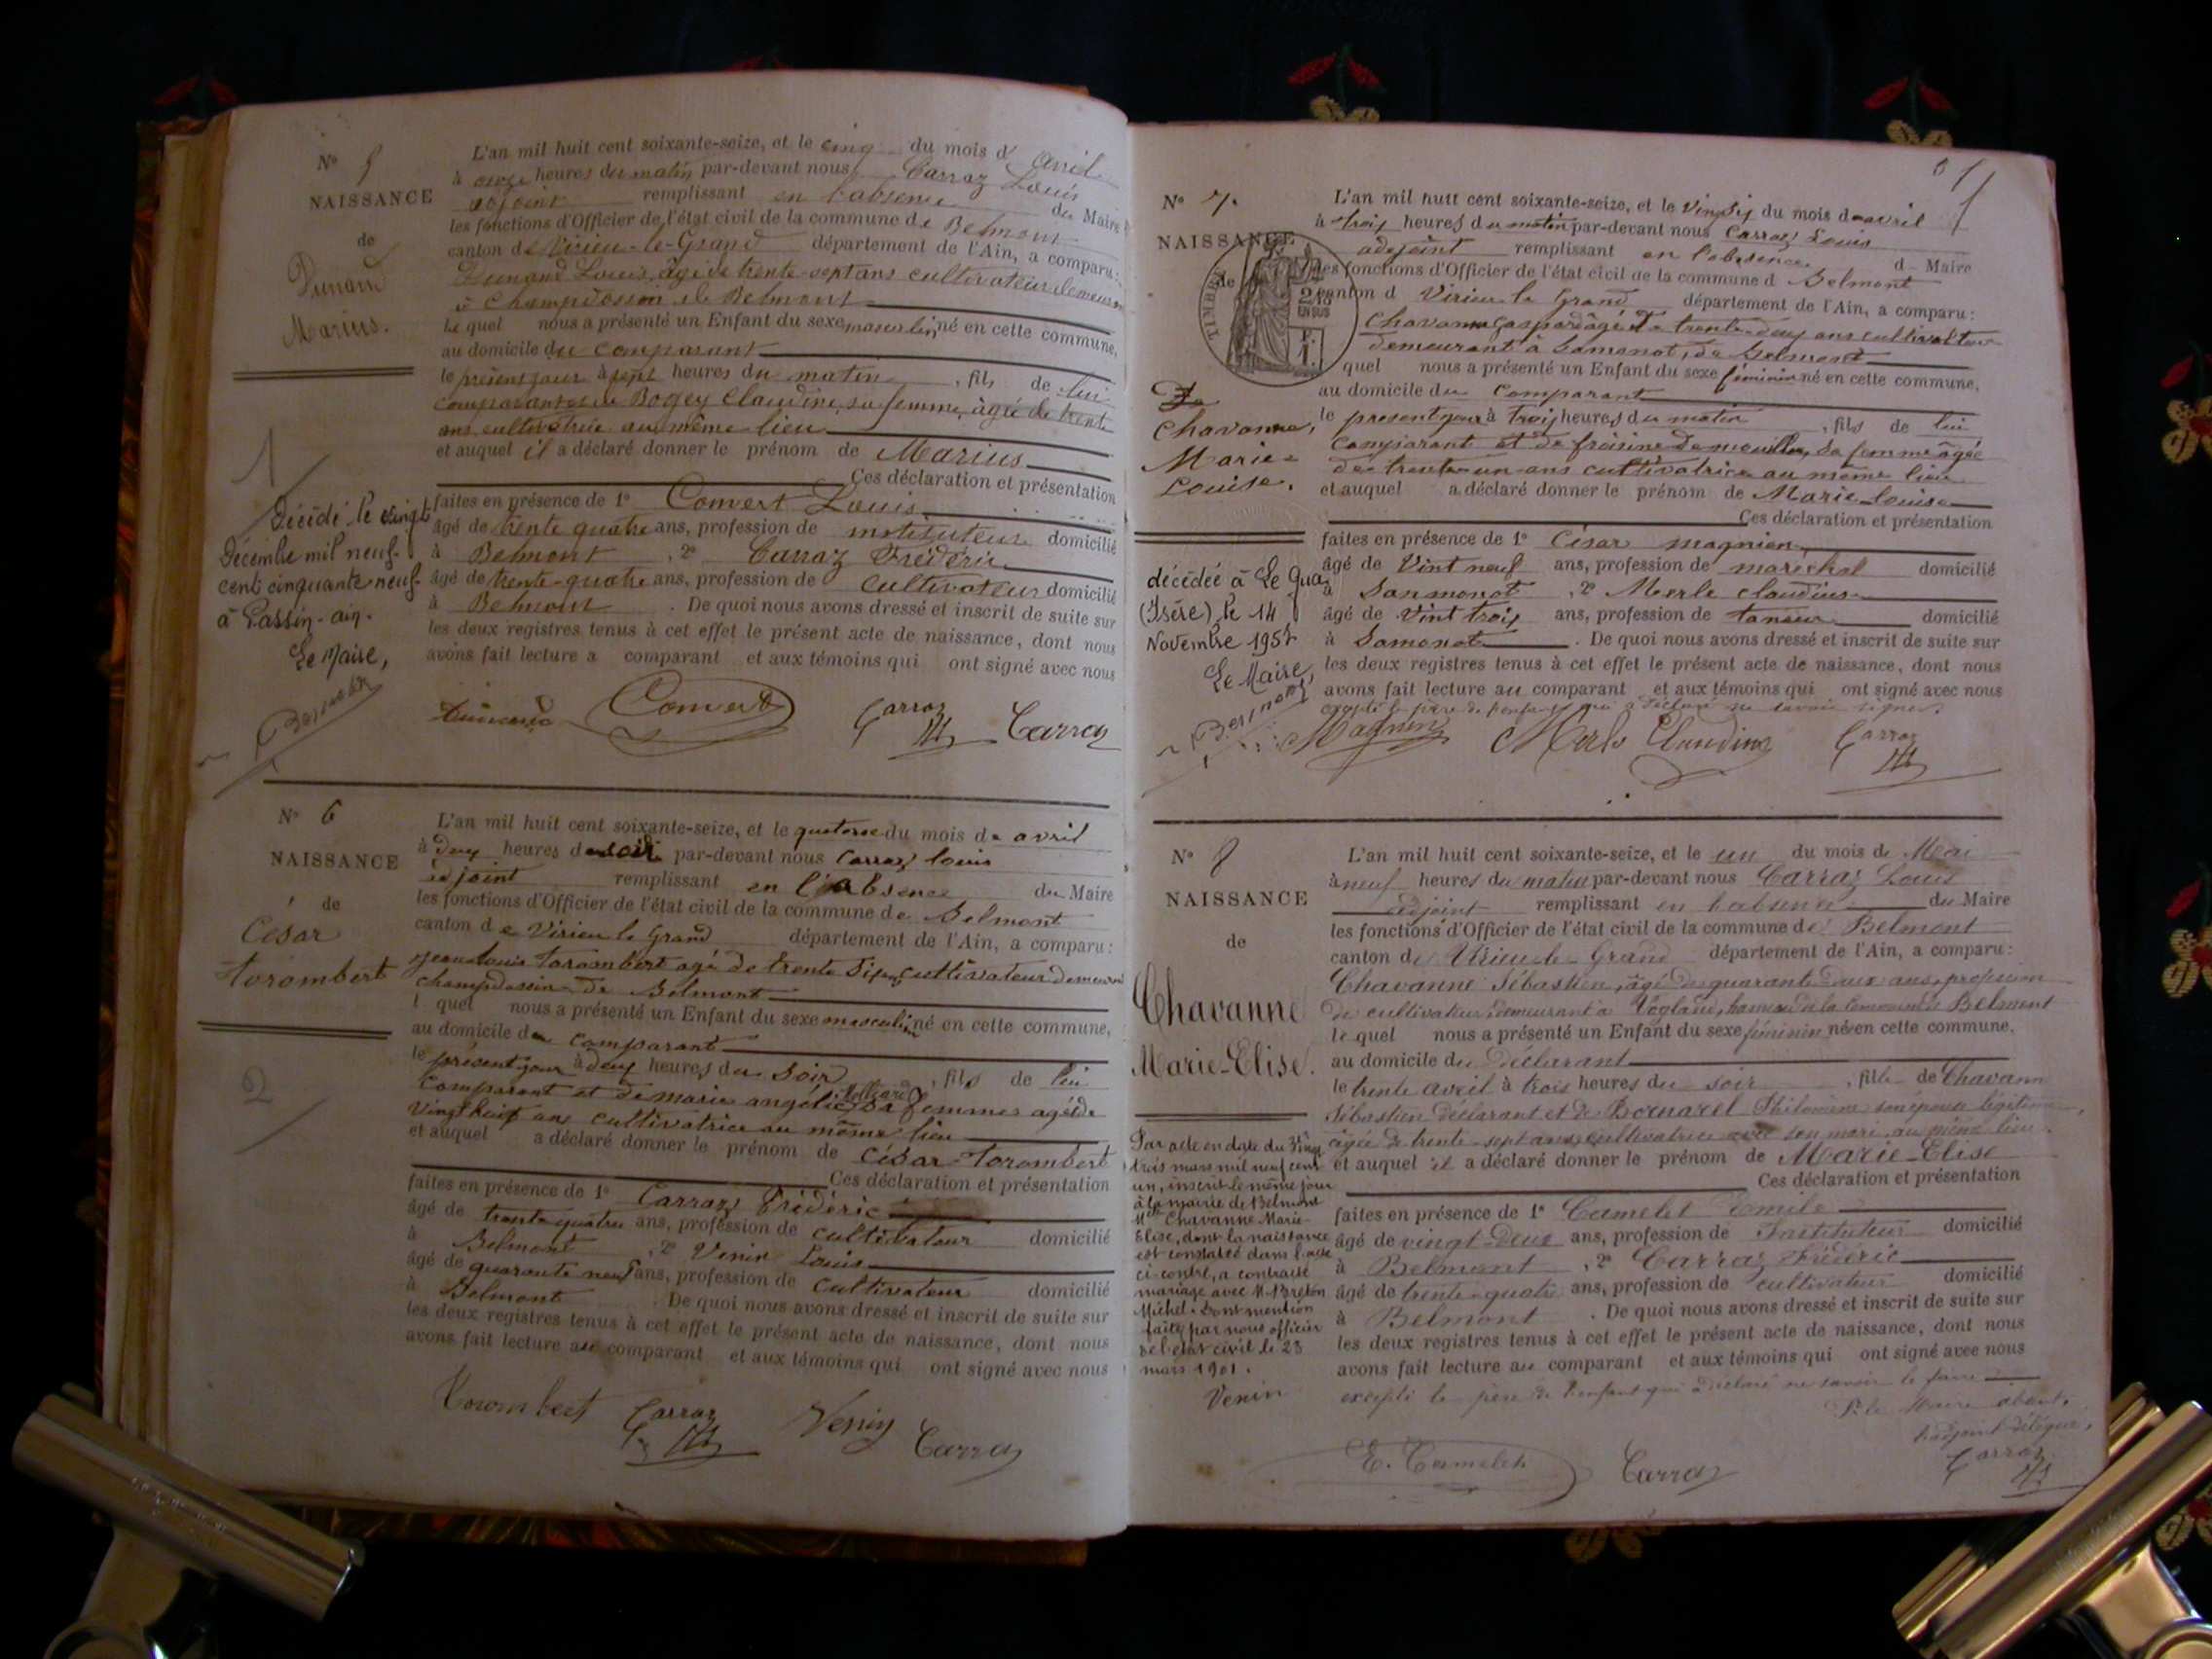 N° 5
NAISSANCE
de
Dunand
Marius.
L'an mil huit cent soixante-seize, et le cinq du mois d' avril
à onze heures du matin par-devant nous Carraz Louis
adjoint remplissant en l'absence du Maire
les fonctions d'Officier de l'état civil de la commune de Belmont
canton de Virieu-le-Grand département de l'Ain, a comparu:
Dunand Louis, âgé de trente-sept ans cultivateur demeurant
à Champdossin de Belmont
Le quel nous a présenté un Enfant du sexe masculin, né en cette commune,
au domicile du comparant
le présent jour à sept heures du matin, fils de lui
comparant et de Bogey Claudine, sa femme, âgée de trente
ans cultivatrice au même lieu
et auquel il a déclaré donner le prénom de Marius
Ces déclaration et présentation
faites en présence de 1° Convert Louis
âgé de trente quatre ans, profession de instituteur domicilié
à Belmont, 2° Carraz Frédéric
âgé de trente-quatre ans, profession de cultivateur domicilié
à Belmont. De quoi nous avons dressé et inscrit de suite sur
les deux registres tenus à cet effet le présent acte de naissance, dont nous
avons fait lecture a comparant et aux témoins qui ont signé avec nous
Dunand Convert Carraz Carraz
1
Décédé le vingt
Décembre mil neuf-
cent cinquante neuf-
à Passin-ain.
Le Maire,
N° 6
NAISSANCE
de
César
torombert
2
L'an mil huit cent soixante-seize, et le quatorze du mois de avril
à deux heures du soir par-devant nous Carraz louis
adjoint remplissant en l'absence du Maire
les fonctions d'Officier de l'état civil de la commune de Belmont
canton de Virieu le Grand département de l'Ain, a comparu:
jean louis torombert agé de trente six ans cultivateur demeurant
champdossin de Belmont
l quel nous a présenté un Enfant du sexe masculin né en cette commune,
au domicile du comparant
le présent jour à deux heures du soir, fils de lui
comparant et de marie angélic sa femmes agé de
vingt huit ans cultivatrice au même lieu
et auquel a déclaré donner le prénom de César torombert
Ces déclaration et présentation
faites en présence de 1° Carraz Frédéric
âgé de trente quatre ans, profession de cultivateur domicilié
à Belmont, 2° Venin Louis
âgé de quarante neuf ans, profession de cultivateur domicilié
à Belmont. De quoi nous avons dressé et inscrit de suite sur
les deux registres tenus à cet effet le présent acte de naissance, dont nous
avons fait lecture au comparant et aux témoins qui ont signé avec nous
Torombert Carraz Venin Carraz
N° 7.
NAISSANCE
de
TIMBRE
Chavanne,
Marie-
Louise.
L'an mil huit cent soixante-seize, et le vingt six du mois de avril
à trois heures du matin par-devant nous Carraz Louis
adejoint remplissant en l'absence d Maire
les fonctions d'Officier de l'état civil de la commune d Belmont
canton d Virieu le Grand département de l'Ain, a comparu:
Chavanne gaspard âgé de trente-deux ans cultivateur
demeurant à Samonot, de Belmont
quel nous a présenté un Enfant du sexe féminin né en cette commune,
au domicile du comparant
le présent jour à trois heures du matin, fils de lui
comparant et de sa femme âgée
de trente-un ans cultivatrice au même lieu
et auquel a déclaré donner le prénom de Marie Louise
Ces déclaration et présentation
faites en présence de 1° César magnien
âgé de Vint neuf ans, profession de maréchal domicilié
à Sanmonot, 2° Merle claudius
âgé de Vint trois ans, profession de taneur domicilié
à Samonot. De quoi nous avons dressé et inscrit de suite sur
les deux registres tenus à cet effet le présent acte de naissance, dont nous
avons fait lecture au comparant et aux témoins qui ont signé avec nous
excepté le père de l'enfant qui a déclaré ne savoir signer.
Magnin Merle Claudius Carraz
décédée à Le Gua
(Isère), le 14
Novembre 1957
Le Maire,
N° 8
NAISSANCE
de
Chavanne
Marie-Elise.
L'an mil huit cent soixante-seize, et le un du mois de Mai
à neuf heures du matin par-devant nous Carraz Louis
adjoint remplissant en l'absence du Maire
les fonctions d'Officier de l'état civil de la commune de Belmont
canton de Virieu-le-Grand département de l'Ain, a comparu:
Chavanne Sébastien, âgé de quarante deux ans, profession
de cultivateur demeurant à Vogland, hameau de la commune de Belmont
le quel nous a présenté un Enfant du sexe féminin né en cette commune,
au domicile du Déclarant
le trente avril à trois heures du soir, fille de Chavanne
Sébastien déclarant et de Bornarel Philomène son épouse légitime,
agée de trente-sept ans cultivatrice avec son mari au même lieu.
et auquel il a déclaré donner le prénom de Marie-Elise
Ces déclaration et présentation
faites en présence de 1° Camelet Emile
âgé de vingt-deux ans, profession de Instituteur domicilié
à Belmont, 2° Carraz Frédéric
âgé de trente-quatre ans, profession de cultivateur domicilié
à Belmont. De quoi nous avons dressé et inscrit de suite sur
les deux registres tenus à cet effet le présent acte de naissance, dont nous
avons fait lecture au comparant et aux témoins qui ont signé avec nous
excepté le père de l'enfant qui a déclaré ne savoir le faire
Pr le Maire absent,
l'adjoint délégué,
E. Camelet Carraz Carraz
Par acte en date du vingt
trois mars mil neuf cent
un, inscrit le même jour
à la mairie de Belmont
Mlle Chavanne Marie-
Elise, dont la naissance
est constatée dans l'acte
ci-contre, a contracté
mariage avec M. Breton
Michel. Dont mention
faite par nous officier
de l'état civil le 23
mars 1901.
Venin